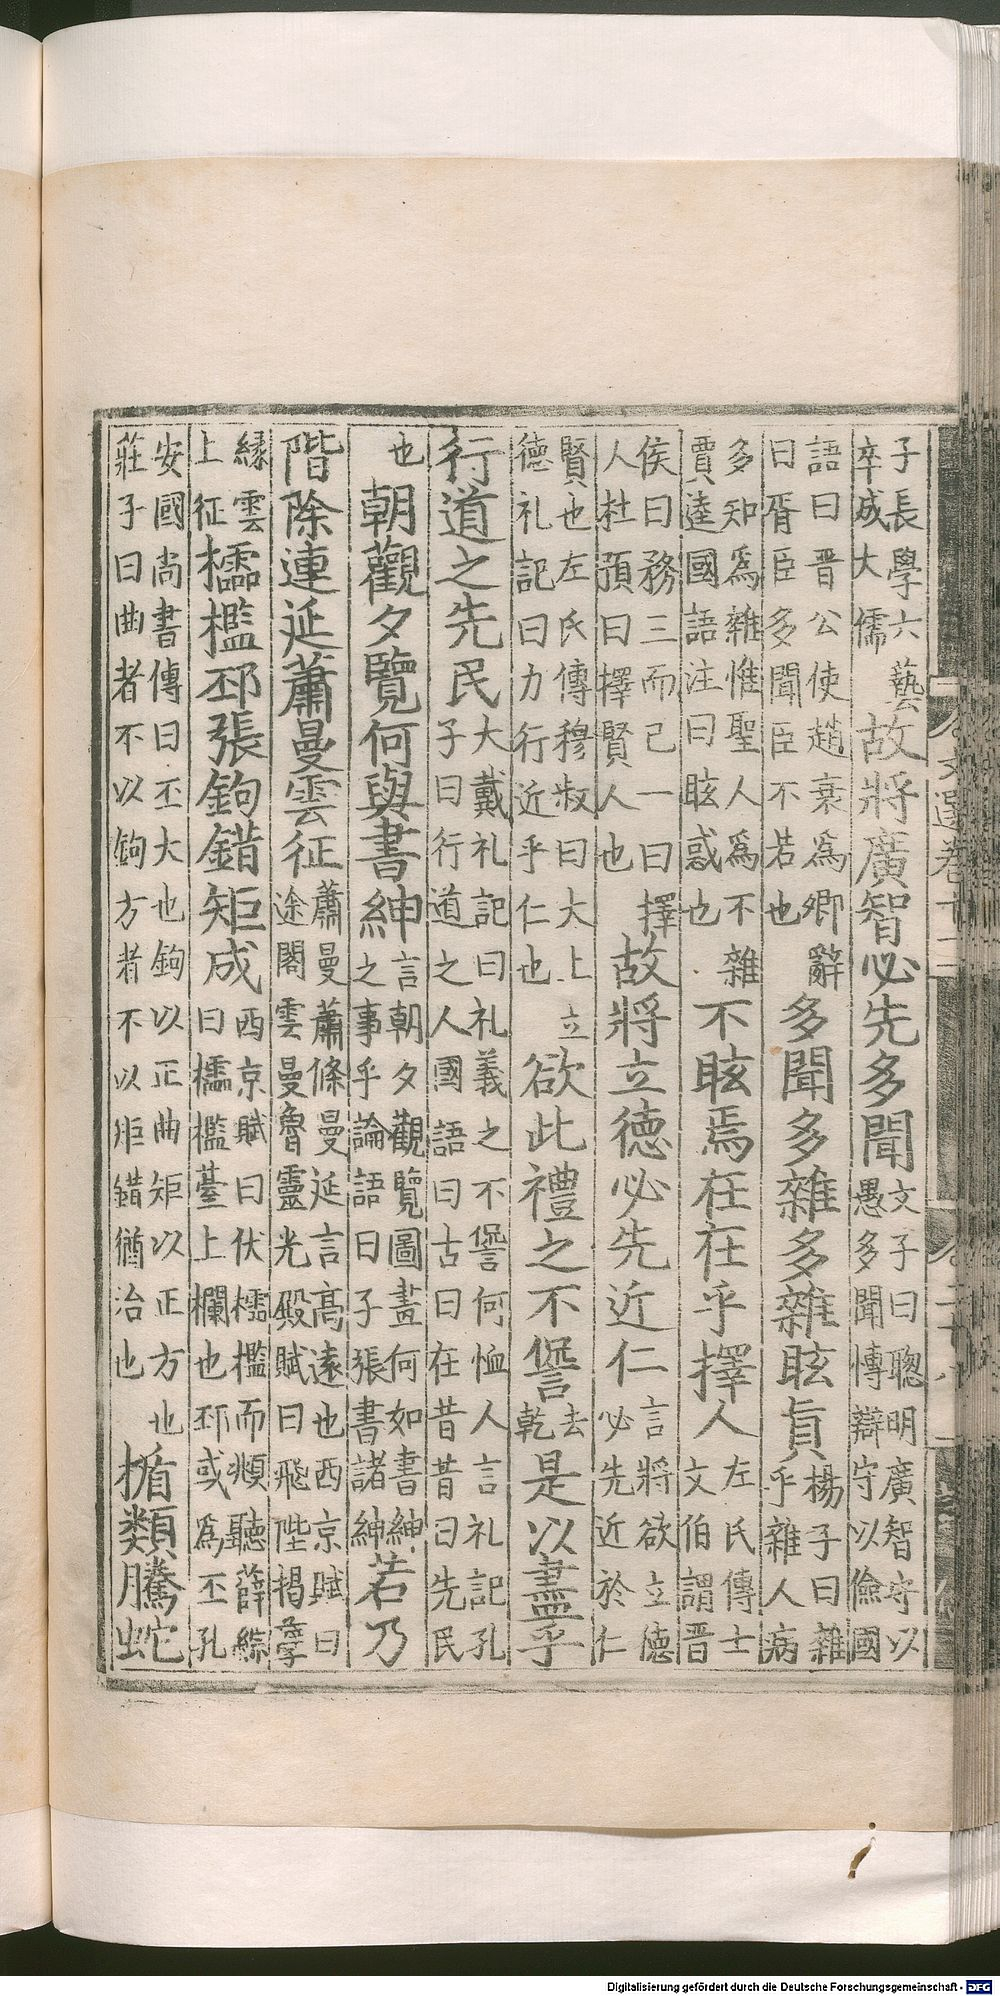 子長學六藝卒成大儒故將廣智必先多聞文子曰聰明廣智守以愚多聞慱辯守以儉國
語曰晉公使趙衰爲卿辭曰胥臣多聞臣不若也多聞多雜多雜眩眞楊子曰雜乎雜人病
多知爲雜惟聖人爲不雜賈逵國語注曰眩惑也不眩焉在在乎擇人左氏傳士文伯謂晉
侯曰務三而已一曰擇人杜預曰擇賢人也故將立德必先近仁言將欲立德必先近於仁
賢也左氏傳穆叔曰大上立德礼記曰力行近乎仁也欲此禮之不諐去乾是以盡乎
行道之先民大戴礼記曰礼義之不諐何恤人言礼記孔子曰行道之人國語曰古曰在昔昔曰先民
也朝觀夕覽何與書紳言朝夕觀覽圖畫何如書紳之事乎論語曰子張書諸紳若乃
階除連延蕭曼雲征蕭曼蕭條曼延言高遠也西京賦曰途閣雲曼魯靈光殿賦曰飛陛揭孽
緣雲上征櫺檻邳張鉤錯矩成西京賦曰伏櫺檻而頫聽薛綜曰櫺檻臺上欄也邳或爲丕孔
安國尚書傳曰丕大也鉤以正曲矩以正方也莊子曰曲者不以鉤方者不以矩錯猶治也楯類騰蛇
Digitalisierung gefördert durch die Deutsche Forschungsgemeinschaft - DFG